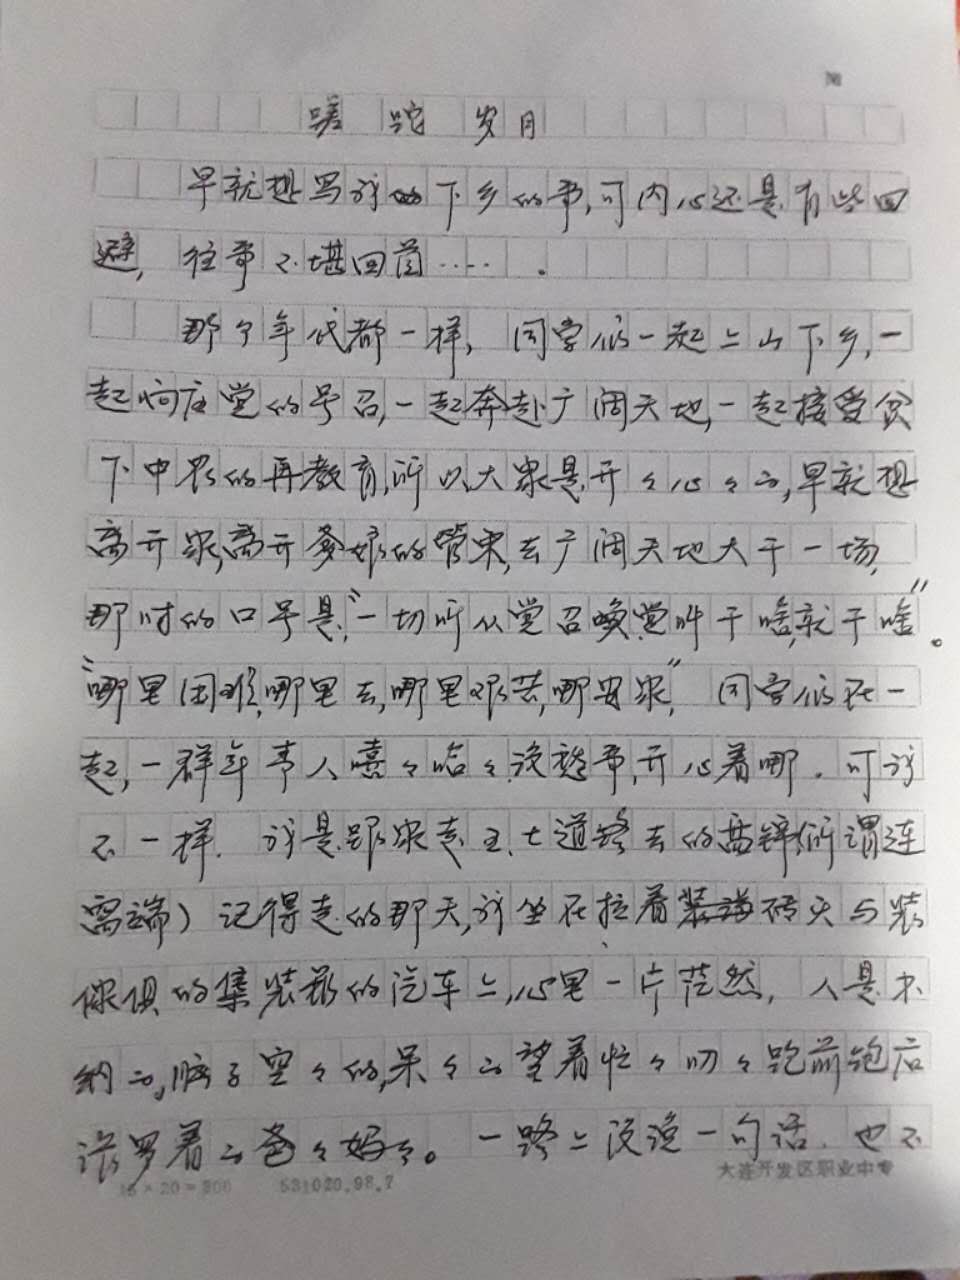 №
蹉跎岁月
早就想写我的下乡的事,可内心还是有些回
避,往事不堪回首……。
那个年代都一样,同学们一起上山下乡,一
起响应党的号召,一起奔赴广阔天地,一起接受贫
下中农的再教育,所以大家是开々心々的,早就想
离开家,离开爹娘的管束,去广阔天地大干一场,
那时的口号是,"一切听从党召唤,党叫干啥,就干啥"。
"哪里困难,哪里去,哪里艰苦,哪安家,"同学们在一
起,一群年青人嘻々哈々没愁事,开心着哪.可我
不一样.我是跟家走五七道路去的(所谓连
窝端)记得走的那天,我坐在拉着装砖头与装
傢俱的集装箱的汽车上,心里一片茫然,人是木
纳的,脑子空々的,呆々的望着忙々叨々跑前跑后
张罗着的爸々妈々。一路上没说一句话.也不
15×20=300 531020.98.7 大连开发区职业中专